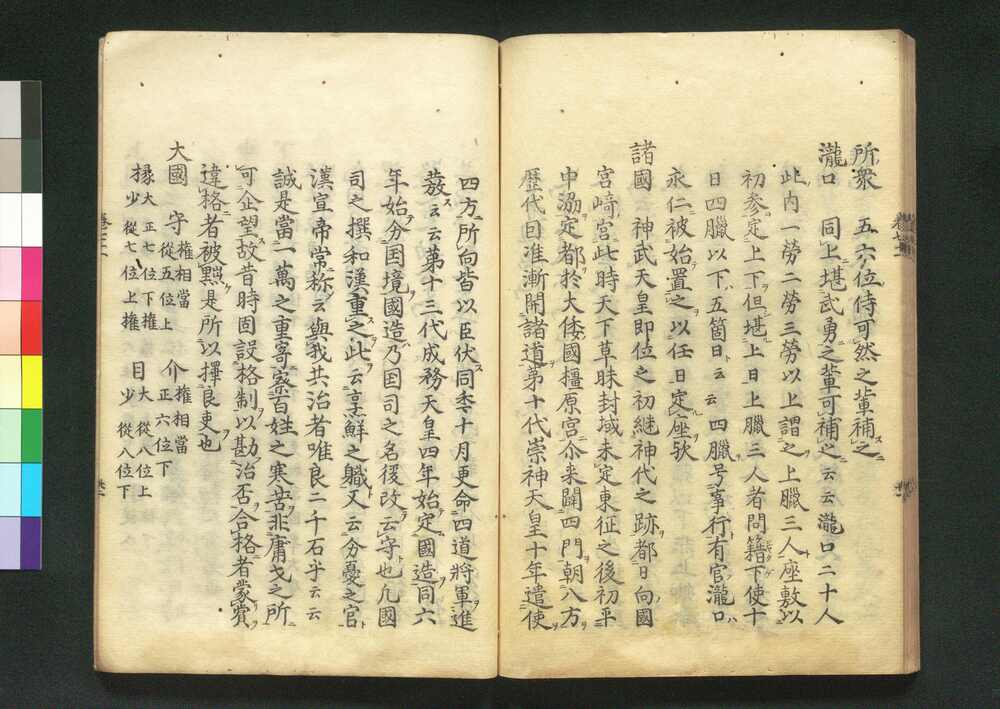 所衆　五六位侍可然之輩補之
瀧口　同上堪武勇之輩可補之云云瀧口二十人
此内一勞二勞三勞以上謂之上臈三人座敷以
初参定上下但堪上日上臈三人者問籍下使十
日四臈以下五箇日云云四臈号事行有官瀧口
永仁被始置之以任日定座欤
諸國　神武天皇即位之初継神代之跡都日向國
宮﨑宮此時天下草昧封域未定東征之後初平
中洲定都於大倭國橿原宮尒来闢四門朝八方
歴代因准漸開諸道第十代崇神天皇十年遣使
四方所向皆以臣伏同季十月更命四道將軍進
發云云第十三代成務天皇四年始定國造同六
年始分国境國造乃国司之名後改云守也凢國
司之撰和漢重之此云烹鮮之職又云分憂之官
漢宣帝常称云與我共治者唯良二千石乎云云
誠是當一萬之重寄察百姓之寒苦非庸戈之所
可企望故昔時固設格制以勘治否合格者蒙賞
違格者被黜是所以擇良吏也
大國　守　権相當　從五位上　介　権相當　正六位下
掾　大　正七位下権　少　從七位上権　目　大　從八位上　少　從八位下